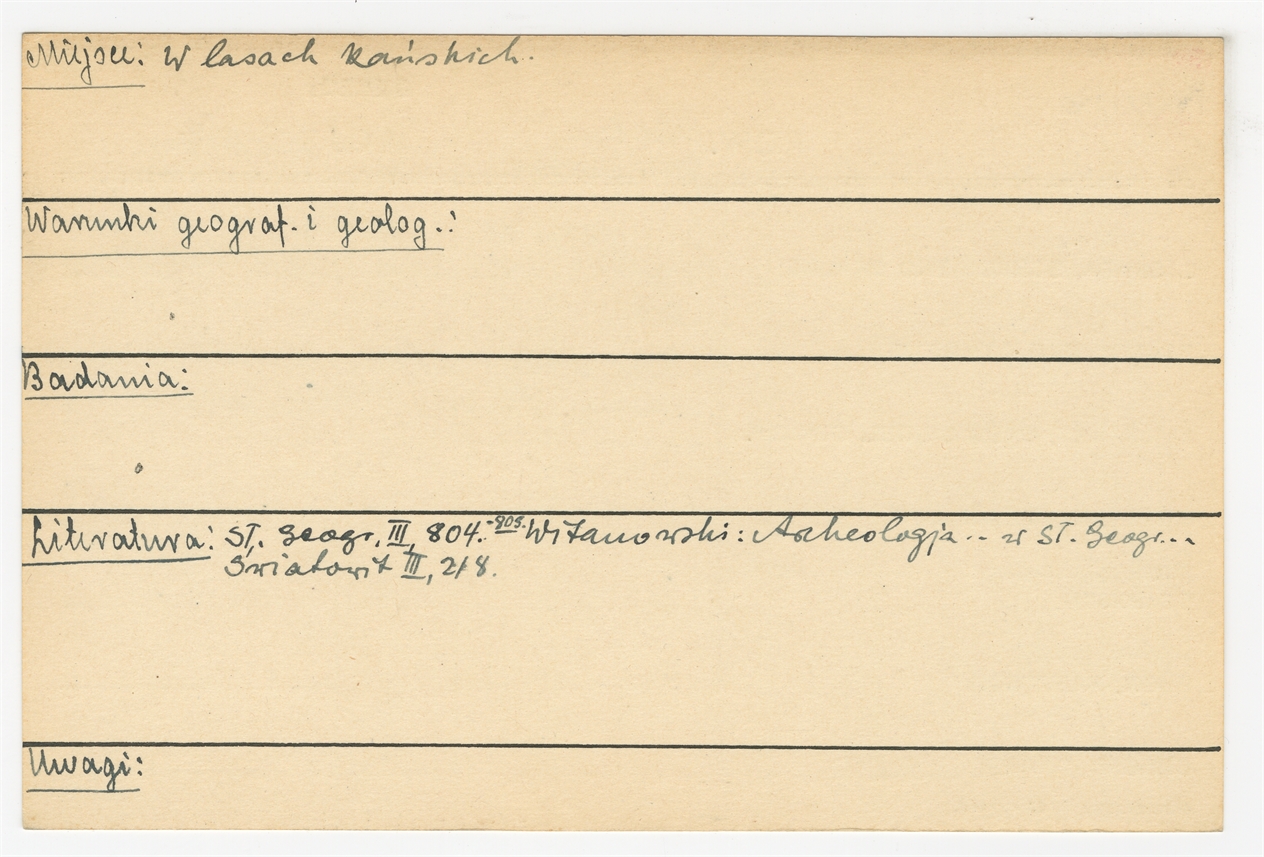 Miejsce: W lasach Kańskich.
Warunki geograf. i geolog.:
Badania:
Literatura: Sł. Geogr, III, 804.-805. Witanowski: Archeologja .. w Sł. Geogr...
Swiatowit III, 218.
Uwagi: